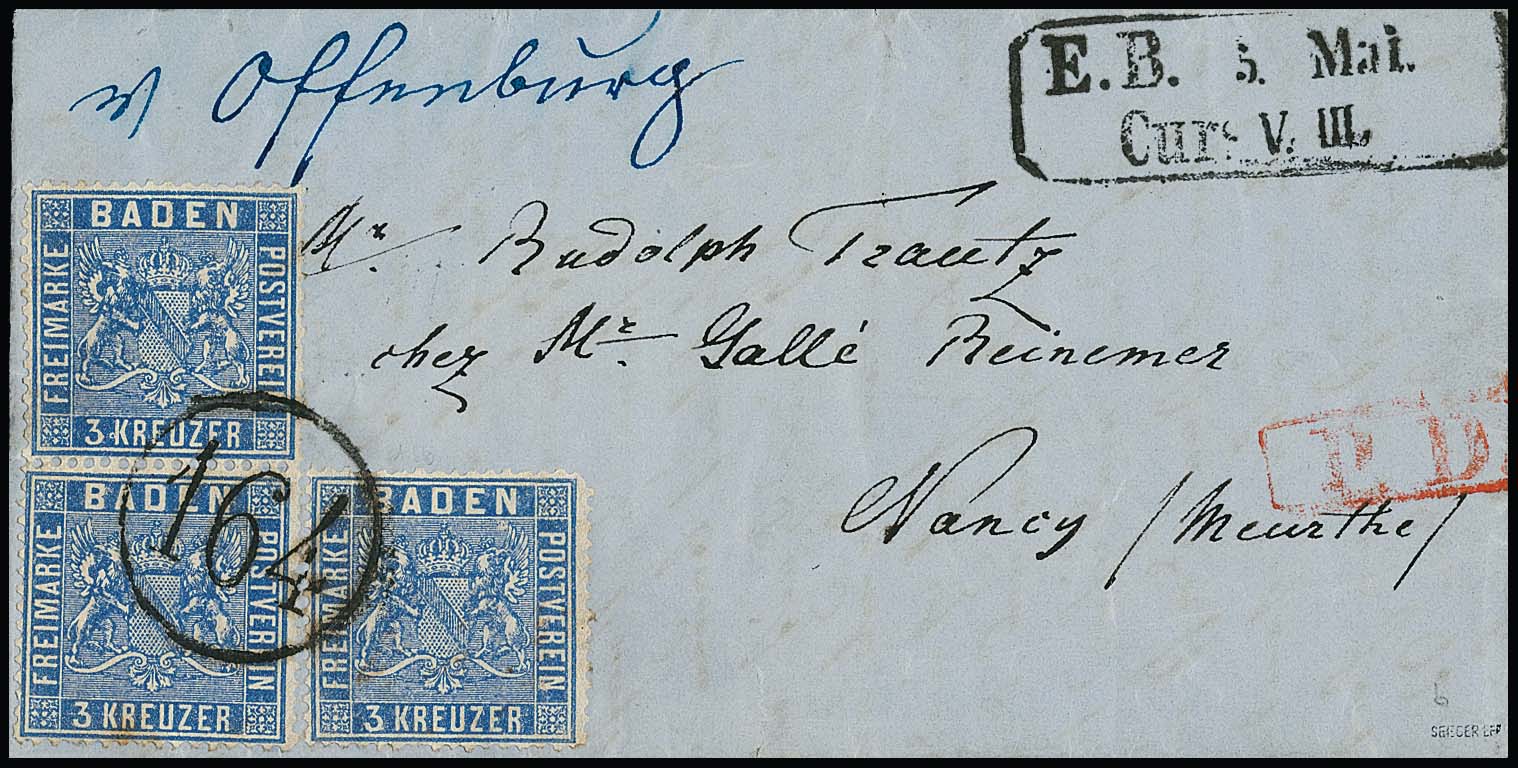 v Offenburg
E. B. 5. Mai.
Curs V. III.
Mr. Rudolph Trautz
chez Mr. Gallé Reinemer
Nancy /Meurthe/
P. D.
BADEN
FREIMARKE
POSTVEREIN
3 KREUZER
BADEN
FREIMARKE
POSTVEREIN
3 KREUZER
164
BADEN
FREIMARKE
POSTVEREIN
3 KREUZER
6
SEEGER BPP